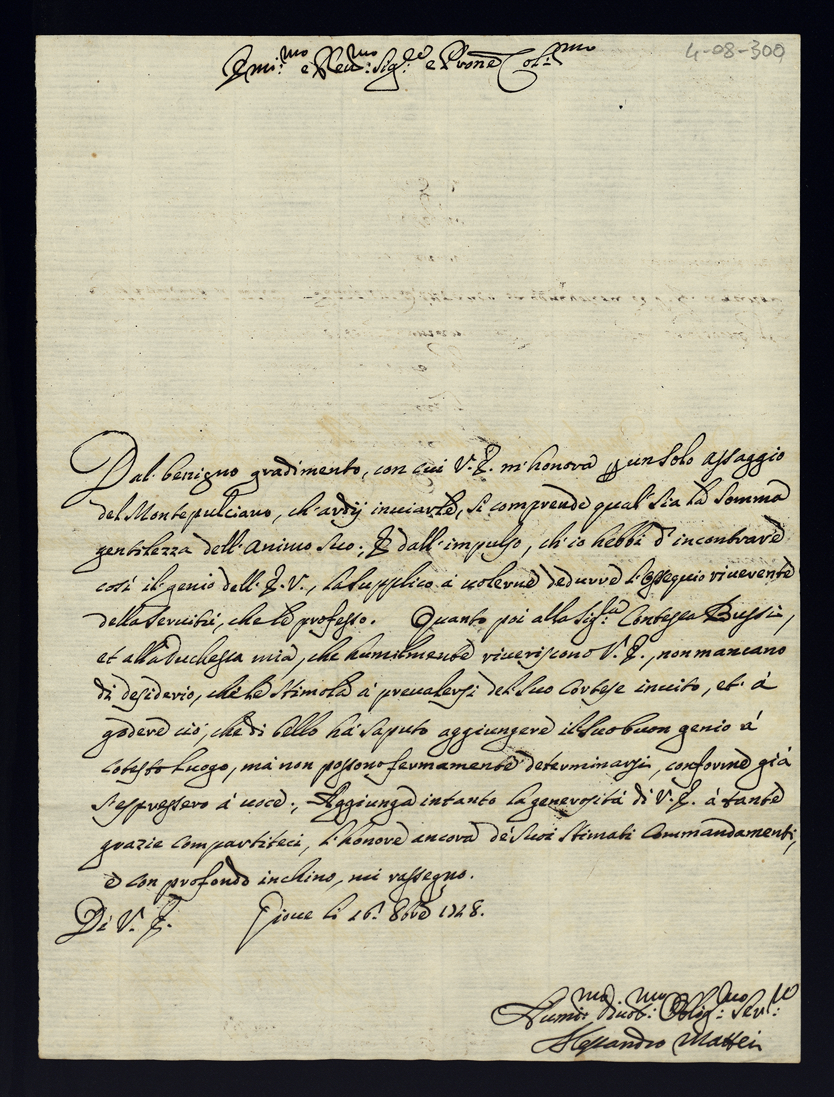 Emi:mo e Rev:mo Sig:re e Prone Col:mo
4-08-300
Dal benigno gradimento, con cui V. E. m'honora per un solo assaggio
del Montepulciano, ch'ardij inviarle, si comprende qual sia la somma
gentilezza dell'Animo suo; E dall'impulso, ch'io hebbi d'incontrare
così il genio dell'E. V., la supplico à volerne dedurre l'ossequio riverente
della servitù, che le professo. Quanto poi alla Sig:ra Contessa Bussi,
et alla Duchessa mia, che humilmente riveriscono V. E., non mancano
di desiderio, che le stimola à prevalersi del suo cortese invito, et à
godere ciò, che di bello hà saputo aggiungere il suo buon genio à
cotesto luogo, mà non possono fermamente determinarsi, conforme già
s'espressero à voce. Aggiunga intanto la generosità di V. E. à tante
grazie compartiteci, l'honore ancora de suoi stimati Commandamenti,
e con profondo inchino, mi rassegno.
Di V. E. Giove li 26. 8bre 1728.
Humi:mo Divot:mo Oblig:mo Serv:re
Alessandro Mattei